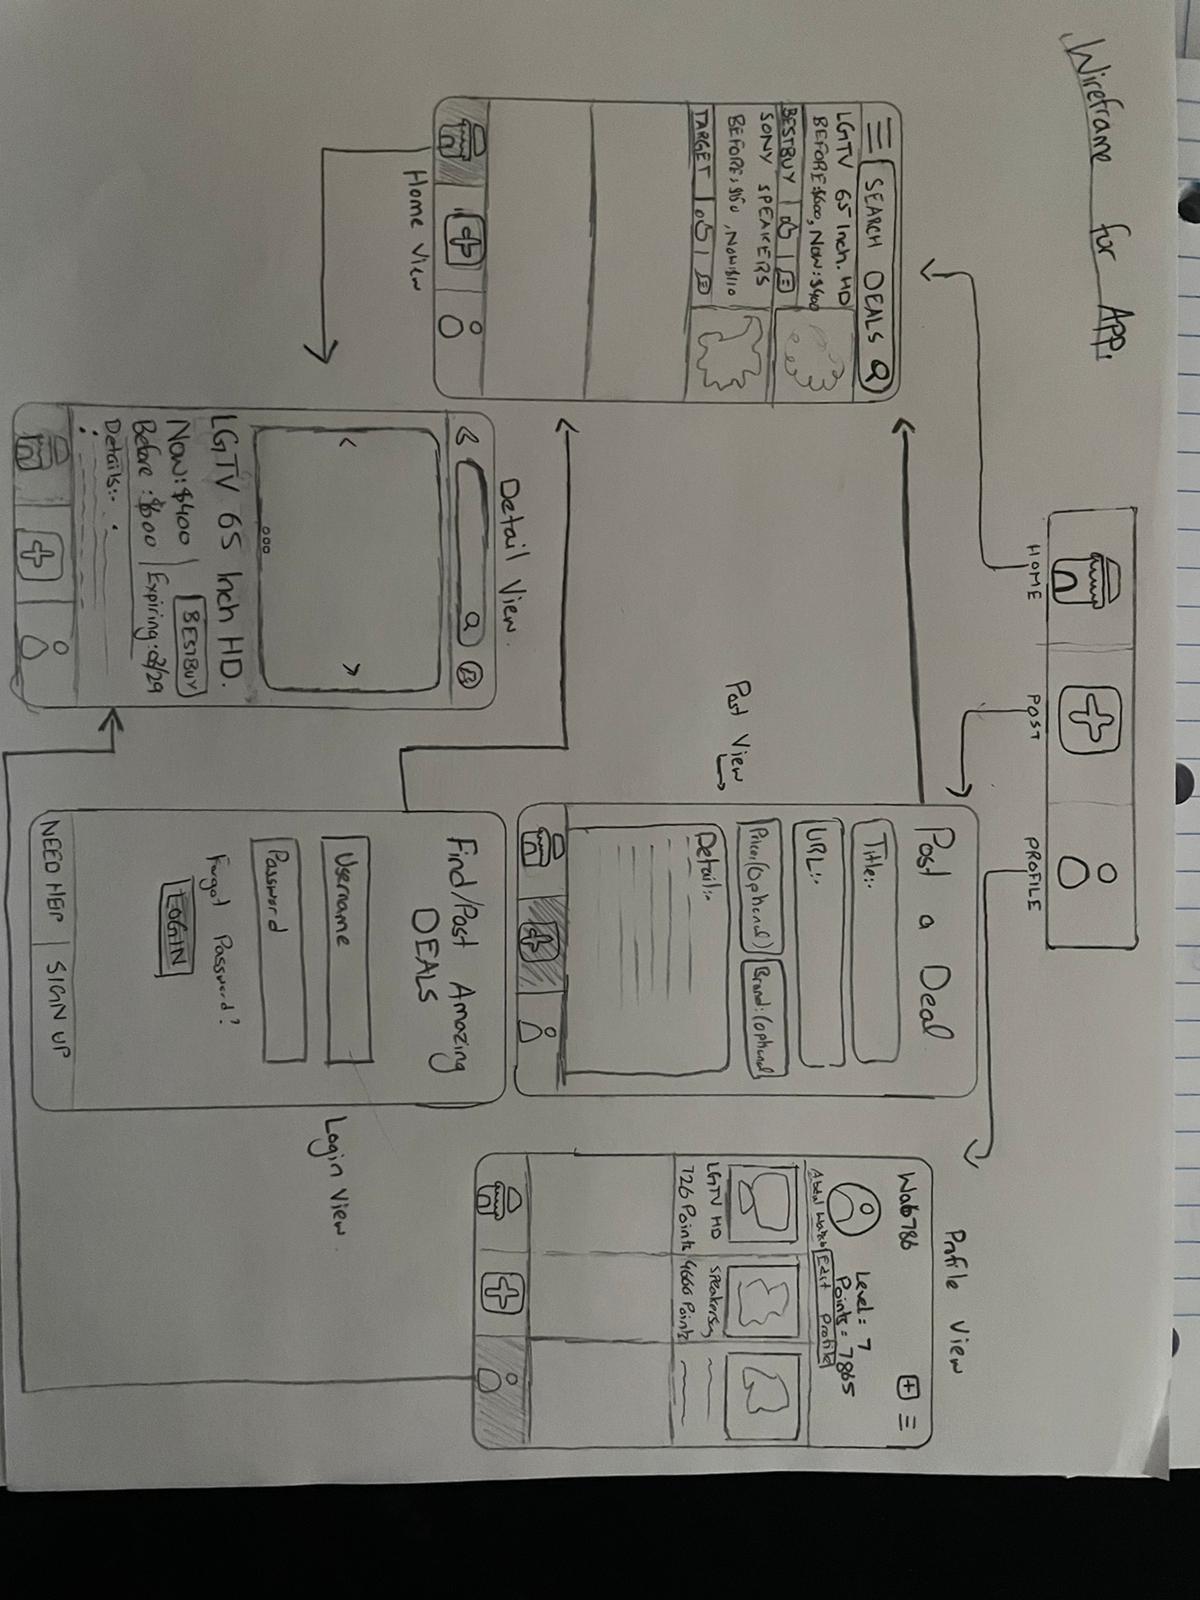 Wireframe for App.
HOME
POST
PROFILE
SEARCH DEALS
LGTV 65 Inch. HD
BEFORE:$600, NOW:$400
BESTBUY
SONY SPEAKERS
BEFORE:$150, NOW:$110
TARGET
Home View
Post a Deal
Title:-
URL:-
Price:(Optional)
Brand:(optional)
Detail:-
Post View
Profile View
Wab786
Level: 7
Points: 7865
Abdul
Edit Profile
LGTV HD
726 Points
Speakers
4666 Points
Detail View.
LGTV 65 Inch HD.
Now:$400
BESTBUY
Before:$600
Expiring:03/29
Details:-
Find/Post Amazing
DEALS
Username
Password
Forgot Password?
LOGIN
NEED HELP
SIGN UP
Login View